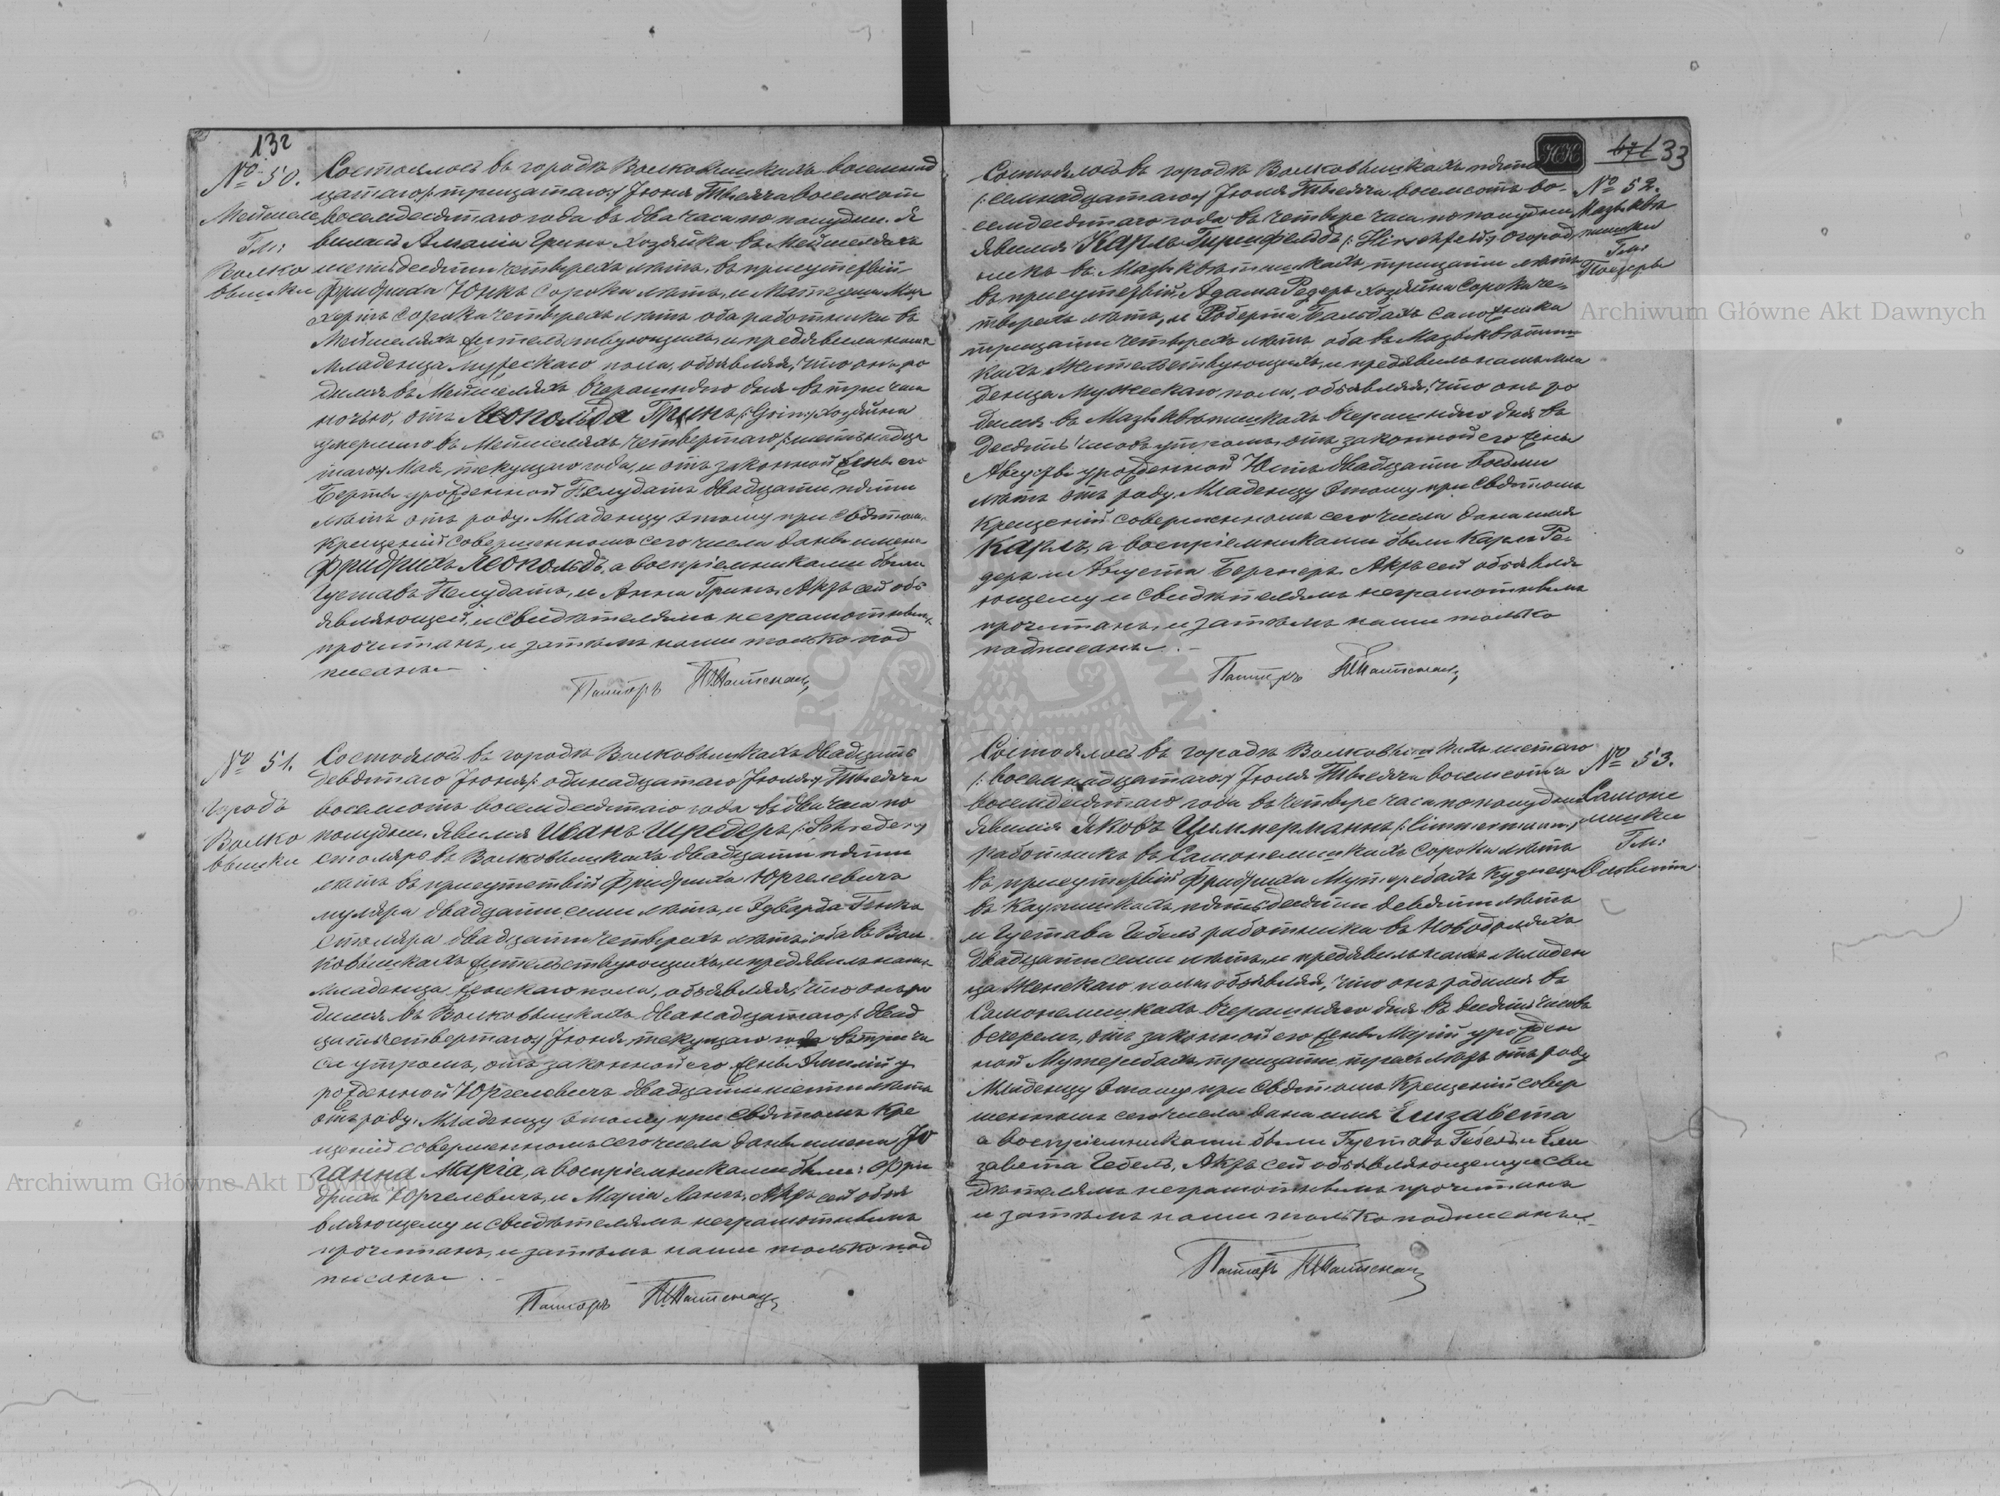 132
№ 50.
Мейшеле
Гм:
Волко
вышки
Состоялось въ городѣ Волковышкахъ восемнад
цатаго /: тридцатаго :/ Іюня Тысяча восемсотъ
восемдесятаго года въ два часа по полудни. Я
вилась Амалія Гринъ хозяйка въ Мейшеляхъ
шестьдесяти четырехъ лѣтъ, въ присутствіи
Фридриха Юнкъ сорока лѣтъ, и
сорока четырехъ лѣтъ оба работники въ
Мейшеляхъ жительствующихъ, и предъявила намъ
младенца мужескаго пола, объявляя, что онъ ро
дился въ Мейшеляхъ вчерашняго дня въ три часа
ночью, отъ Леопольда Гринъ /: Grin :/ хозяйна
умершаго въ Мейшеляхъ четвертаго /: шестнадца
таго :/ Мая, текущаго года, и отъ законной жены его
Берты урожденной Пелудатъ двадцати пяти
лѣтъ отъ роду. Младенцу этому при святомъ
крещеніи совершенномъ сего числа даны имена
Фридрихъ Леопольдъ, а воспріемниками были
Густавъ Пелудатъ, и Анна Гринъ. Актъ сей объ
являющей, и свидѣтелямъ неграмотнымъ,
прочитанъ, и затѣмъ нами только под
писанъ.
Пасторъ
№ 51.
Городъ
Волко
вышки
Состоялось въ городѣ Волковышкахъ двадцать
девятаго Іюня /: одинадцатаго Іюля :/ Тысяча
восемсотъ восемдесятаго года въ два часа по
полудни. Явился Иванъ Шредеръ /: Schreder :/
столяръ въ Волковышкахъ двадцати пяти
лѣтъ въ присутствіи Фридриха Юргелевичъ
муляра двадцати семи лѣтъ, и Эдварда
столяра двадцати четырехъ лѣтъ, оба въ Вол
ковышкахъ жительствующихъ, и предъявилъ намъ
младенца женскаго пола, объявляя, что онъ ро
дился въ Волковышкахъ дванадцатаго /: двад
цать четвертаго :/ Іюня, текущаго года въ три ча
са утромъ, отъ законной его жены Эмиліи у
рожденной Юргелевичъ двадцати шести лѣтъ
отъ роду. Младенцу этому при святомъ кре
щеніи совершенномъ сего числа даны имена Іо
ганна Марія, а воспріемниками были: Фри
дрихъ Юргелевичъ, и Марія Лангъ. Актъ сей объя
вляющему и свидѣтелямъ неграмотнымъ
прочитанъ, и затѣмъ нами только под
писанъ.
Пасторъ
33
№ 52.
Мазькѣт
нишки
Гм:
Состоялось въ городѣ Волковышкахъ пятаго
/: семнадцатаго :/ Іюля Тысяча восемсотъ во-
семдесятаго года въ четыре часа по полудни
явился Карлъ Гиршфельдъ /: Hirschfeld :/ огород
никъ въ тридцати лѣтъ
въ присутствіи Адама Редеръ хозяйна сорока че-
тырехъ лѣтъ, и Роберта сапожника
тридцати четырехъ лѣтъ оба въ
жительствующихъ, и предъявилъ намъ мла
денца мужескаго пола, объявляя, что онъ ро
дился въ вчерашняго дня въ
десять часовъ утромъ, отъ законной его жены
Августы урожденной Юстъ двадцати восьми
лѣтъ отъ роду. Младенцу этому при святомъ
крещеніи совершенномъ сего числа дано имя
Карлъ, а воспріемниками были Карлъ Ре
деръ и Августа Бергнеръ. Актъ сей объявля
ющему и свидѣтелямъ неграмотнымъ
прочитанъ, и затѣмъ нами только
подписанъ.
Пасторъ
№ 53.
Самоне
лишки
Гм:
Состоялось въ городѣ Волковышкахъ шестаго
/: восемнадцатаго :/ Іюля Тысяча восемсотъ
восемдесятаго года въ четыре часа по полудни
явился Яковъ Циммерманнъ /: Cimmermann :/
работникъ въ Самонелишкахъ сорока лѣтъ
въ присутствіи Фридриха Мутеребахъ кузнеца
въ пятьдесяти девяти лѣтъ
и Густава Гебель работника въ
двадцати семи лѣтъ, и предъявилъ намъ младен
ца женскаго пола объявляя, что онъ родился въ
Самонелишкахъ вчерашняго дня въ десять часовъ
вечеромъ, отъ законной его жены Маріи урожден
ной Мутеребахъ тридцати трехъ лѣтъ отъ роду
Младенцу этому при святомъ крещеніи совер
шенномъ сего числа дано имя Елизабета
а воспріемниками были Густавъ Гебель и Ели
завета Гебель. Актъ сей объявляющему и сви
дѣтелямъ неграмотнымъ прочитанъ
и затѣмъ нами только подписанъ.
Пасторъ
Archiwum Główne Akt Dawnych
Archiwum Główne Akt Dawnych